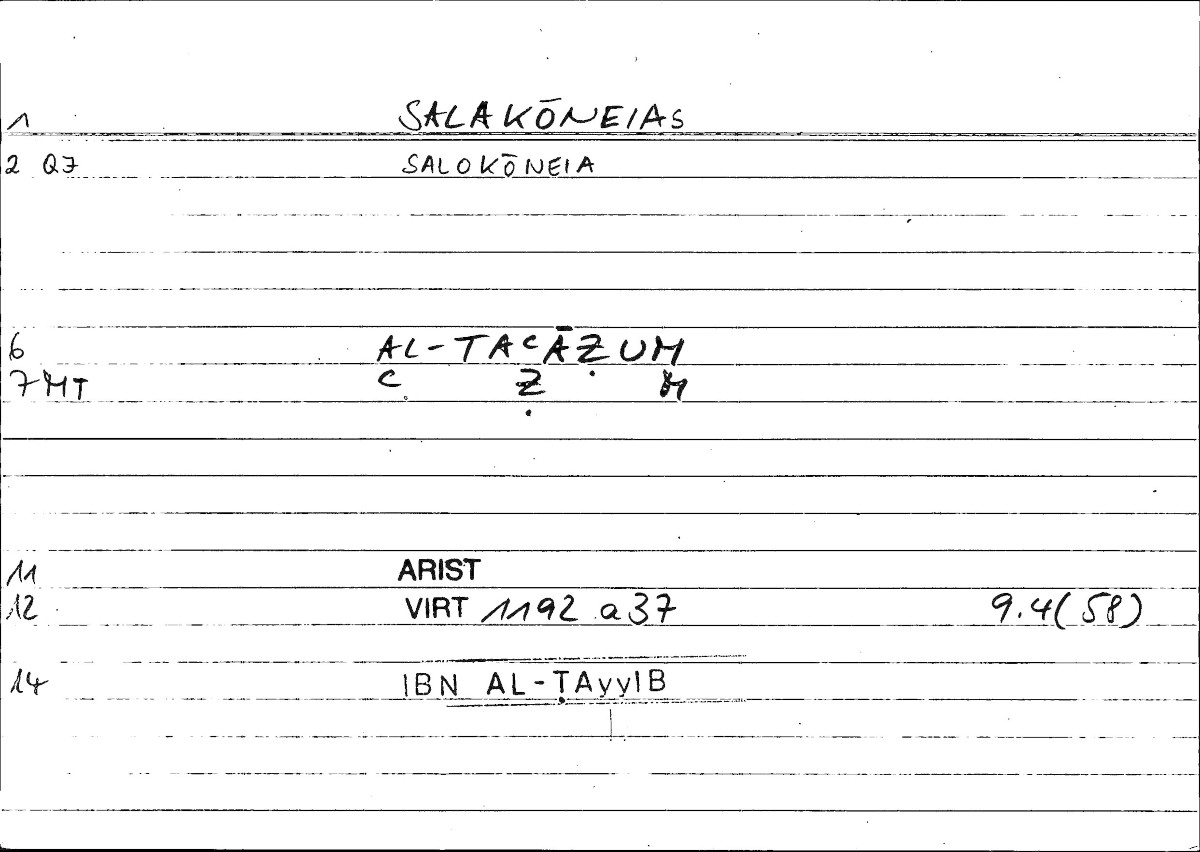 1 SALAKŌNEIAS
2 QJ SALOKŌNEIA
6 AL-TAcĀẒUM
7 MT c Ẓ M
11 ARIST
12 VIRT 1192 a37 9.4(58)
14 IBN AL-ṬAyyIB